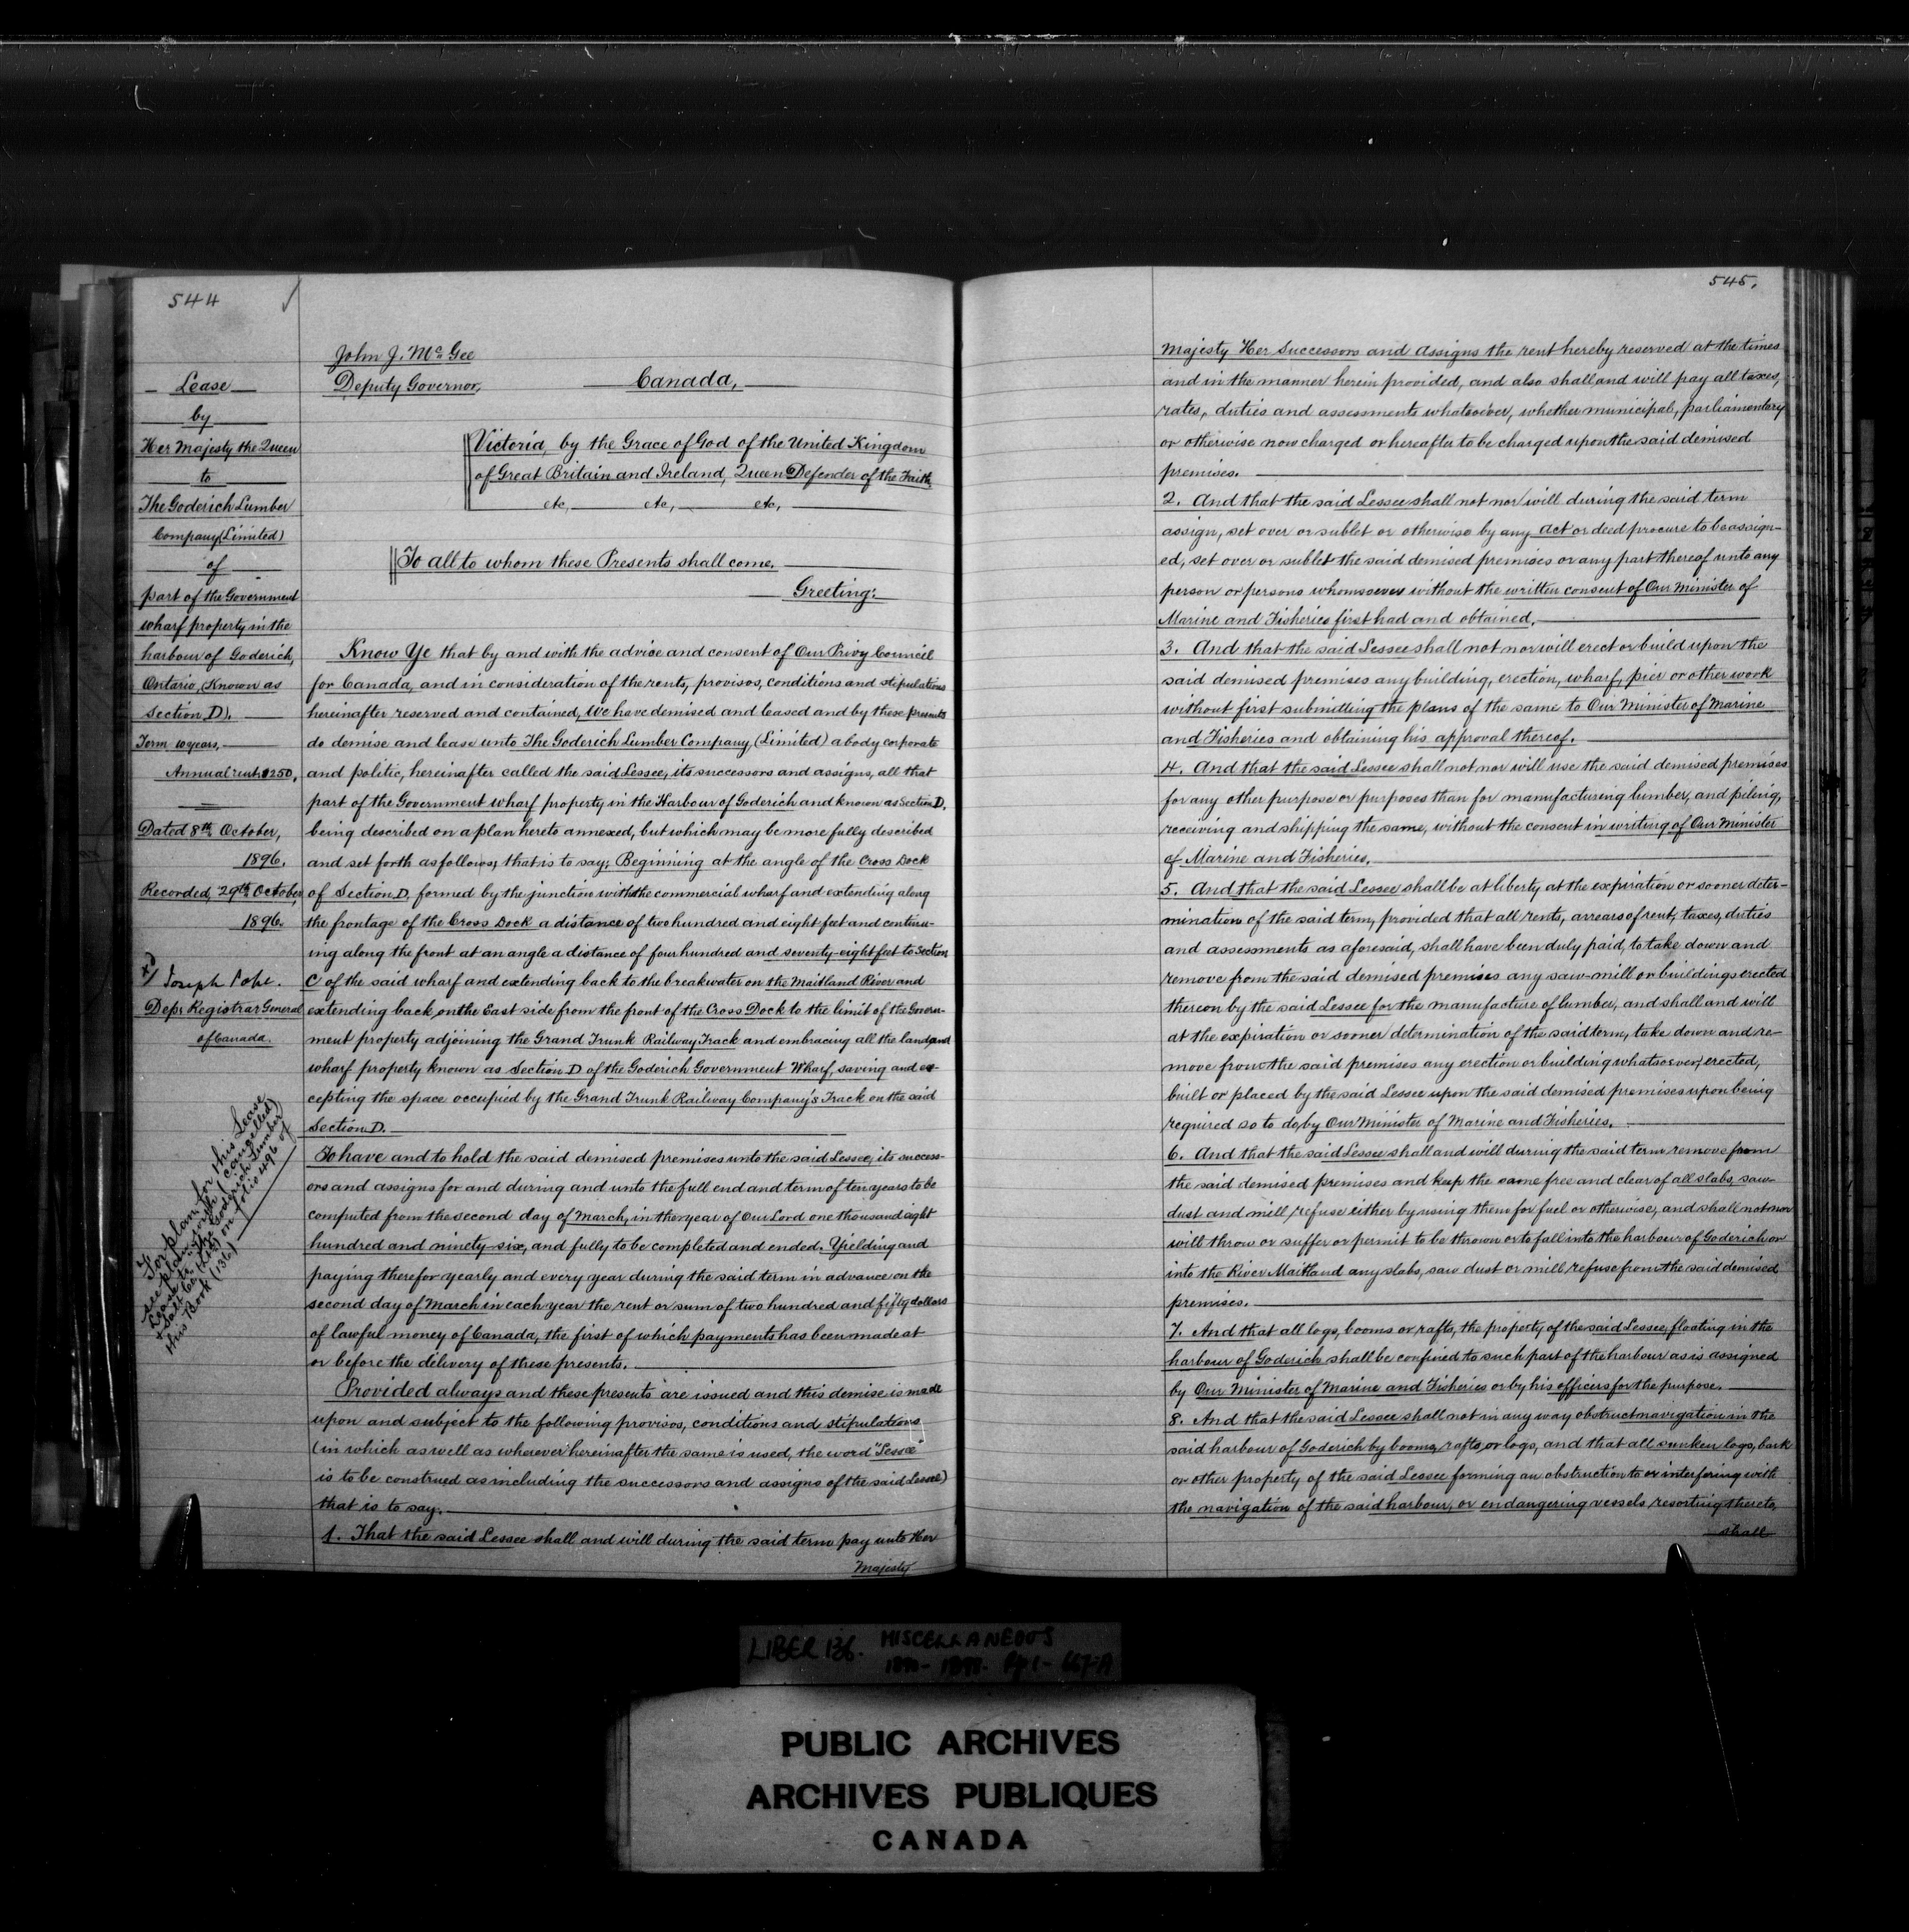 544
Lease
by
Her Majesty the Queen
to
The Goderich Lumber
Company (Limited)
of
part of the Government
wharf property in the
harbour of Goderich,
Ontario, (Known as
Section D).
Term 10 years,
Annual rent $250.
Dated 8th October,
1896.
Recorded, 29th October
1896.
Joseph Pope.
Depy Registrar General
of Canada.
For plan for this Lease
see plan
Lease to The Goderich Lumber
+ Salt Co. (Ltd) on folio 496 of
this Book (136)
John J. McGee
Deputy Governor,
Canada,
Victoria, by the Grace of God of the United Kingdom
of Great Britain and Ireland, Queen Defender of the Faith
etc, etc, etc,
To all to whom these Presents shall come.
Greeting:
Know Ye that by and with the advice and consent of Our Privy Council
for Canada, and in consideration of the rents, provisos, conditions and stipulations
hereinafter reserved and contained, We have demised and leased and by these presents
do demise and lease unto The Goderich Lumber Company, (Limited) a body corporate
and politic, hereinafter called the said Lessee, its successors and assigns, all that
part of the Government wharf property in the Harbour of Goderich and known as Section D,
being described on a plan hereto annexed, but which may be more fully described
and set forth as follows; that is to say: Beginning at the angle of the Cross Dock
of Section D, formed by the junction with the commercial wharf and extending along
the frontage of the Cross Dock a distance of two hundred and eight feet and continu-
ing along the front at an angle a distance of four hundred and seventy-eight feet to Section
C of the said wharf and extending back to the breakwater on the Maitland River and
extending back on the East side from the front of the Cross Dock to the limit of the Govern-
ment property adjoining the Grand Trunk Railway Track and embracing all the land and
wharf property known as Section D of the Goderich Government Wharf, saving and ex-
cepting the space occupied by the Grand Trunk Railway Company's Track on the said
Section D.
To have and to hold the said demised premises unto the said Lessee, its success-
ors and assigns for and during and unto the full end and term of ten years to be
computed from the second day of March, in the year of Our Lord one thousand eight
hundred and ninety-six, and fully to be completed and ended. Yielding and
paying therefor yearly and every year during the said term in advance on the
second day of March in each year the rent or sum of two hundred and fifty dollars
of lawful money of Canada, the first of which payments has been made at
or before the delivery of these presents.
Provided always and these presents are issued and this demise is made
upon and subject to the following provisos, conditions and stipulations
(in which as well as wherever hereinafter the same is used, the word "Lessee"
is to be construed as including the successors and assigns of the said Lessee)
that is to say.
1. That the said Lessee shall and will during the said term pay unto Her
Majesty
545.
Majesty Her Successors and Assigns the rent hereby reserved at the times
and in the manner herein provided, and also shall and will pay all taxes,
rates, duties and assessments whatsoever, whether municipal, parliamentary
or otherwise now charged or hereafter to be charged upon the said demised
premises.
2. And that the said Lessee shall not nor will during the said term
assign, set over or sublet or otherwise by any act or deed procure to be assign-
ed, set over or sublet the said demised premises or any part thereof unto any
person or persons whomsoever without the written consent of Our Minister of
Marine and Fisheries first had and obtained.
3. And that the said Lessee shall not nor will erect or build upon the
said demised premises any building, erection, wharf, pier or other work
without first submitting the plans of the same to Our Minister of Marine
and Fisheries and obtaining his approval thereof.
4. And that the said Lessee shall not nor will use the said demised premises
for any other purpose or purposes than for manufacturing lumber, and piling,
receiving and shipping the same, without the consent in writing of Our Minister
of Marine and Fisheries.
5. And that the said Lessee shall be at liberty at the expiration or sooner deter-
mination of the said term, provided that all rents, arrears of rent, taxes, duties
and assessments as aforesaid, shall have been duly paid, to take down and
remove from the said demised premises any saw-mill or buildings erected
thereon by the said Lessee for the manufacture of lumber, and shall and will
at the expiration or sooner determination of the said term, take down and re-
move from the said premises any erection or building whatsoever, erected,
built or placed by the said Lessee upon the said demised premises upon being
required so to do, by Our Minister of Marine and Fisheries.
6. And that the said Lessee shall and will during the said term remove from
the said demised premises and keep the same free and clear of all slabs, saw-
dust and mill refuse either by using them for fuel or otherwise, and shall not nor
will throw or suffer or permit to be thrown or to fall into the harbour of Goderich or
into the River Maitland any slabs, saw dust or mill refuse from the said demised
premises.
7. And that all logs, booms or rafts, the property of the said Lessee, floating in the
harbour of Goderich shall be confined to such part of the harbour as is assigned
by Our Minister of Marine and Fisheries or by his officers for the purpose.
8. And that the said Lessee shall not in any way obstruct navigation in the
said harbour of Goderich by booms, rafts, or logs, and that all sunken logs, bark
or other property of the said Lessee forming an obstruction to or interfering with
the navigation of the said harbour, or endangering vessels resorting thereto,
shall
LIBER 136. MISCELLANEOUS
PUBLIC ARCHIVES
ARCHIVES PUBLIQUES
CANADA